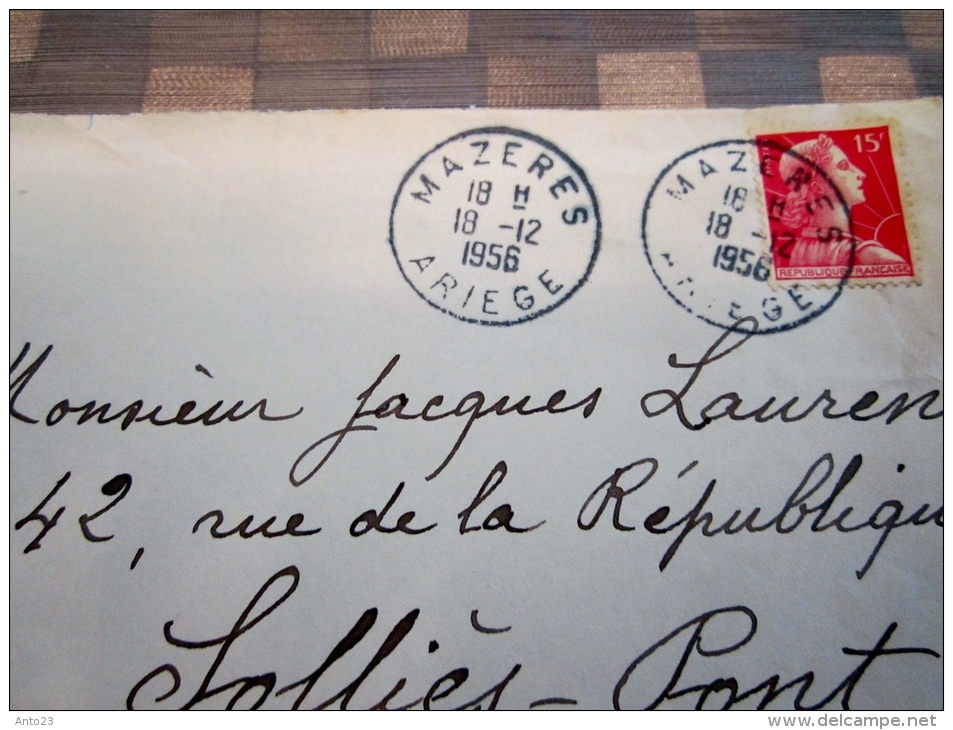 MAZERES
18 H
18 -12
1956
ARIEGE
MAZERES
18 H
18 -12
1956
ARIEGE
15F
REPUBLIQUE FRANCAISE
Monsieur Jacques Lauren
42, rue de la Républiqu
Solliès-Pont
Anto23
www.delcampe.net